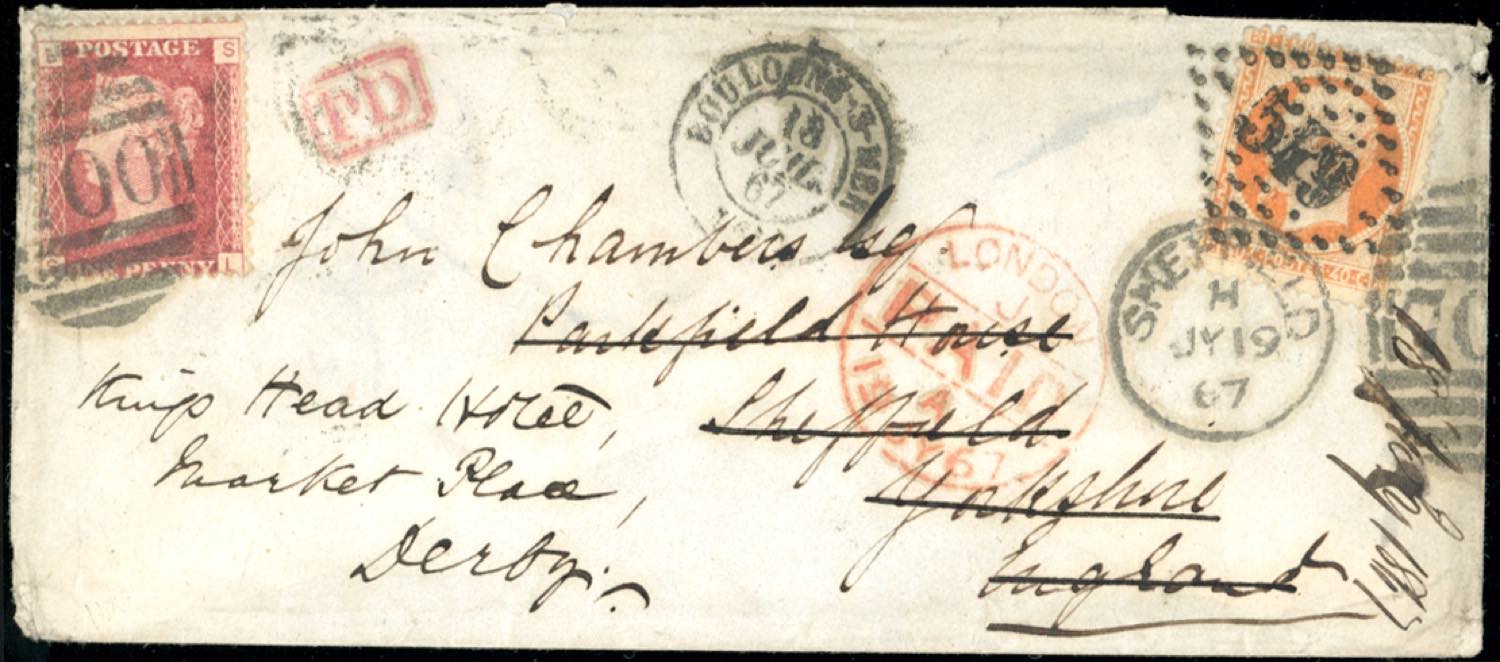 POSTAGE
S
ONE PENNY
L
PD
BOULOGNE-S-MER
18
JUIL.
67
LONDON
PAID
A
JY 67
SHEFFIELD
H
JY 19
67
John Chambers Esq.
Parkfield House
Sheffield
Yorkshire
England
Kings Head Hotel,
Market Place,
Derby.